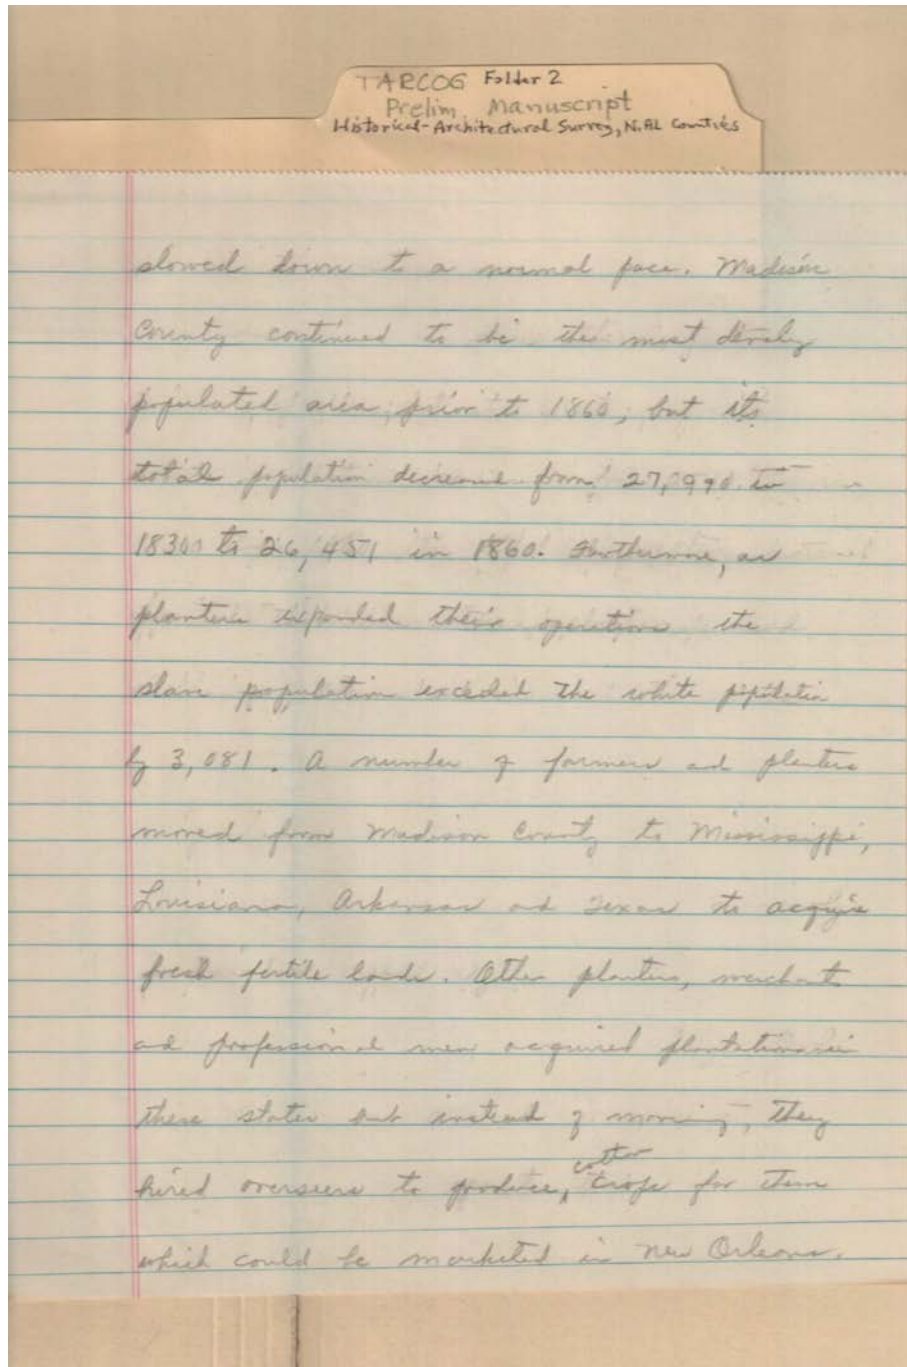 TARCOG Folder 2
Prelim Manuscript
Historical-Architectural Survey, N. AL Counties
slowed down to a normal pace. Madison
County continued to be the most densely
populated area prior to 1860, but its
total population decreased from 27,990 in
1830 to 26,451 in 1860. Furthermore, as
planters expanded their operations the
slave population exceeded the white population
by 3,081. A number of farmers and planters
moved from Madison County to Mississippi,
Louisiana, Arkansas and Texas to acquire
fresh fertile lands. Other planters, merchants
and professional men acquired plantations in
these states but instead of moving, they
cotton
hired overseers to produce, crops for them
which could be marketed in New Orleans.